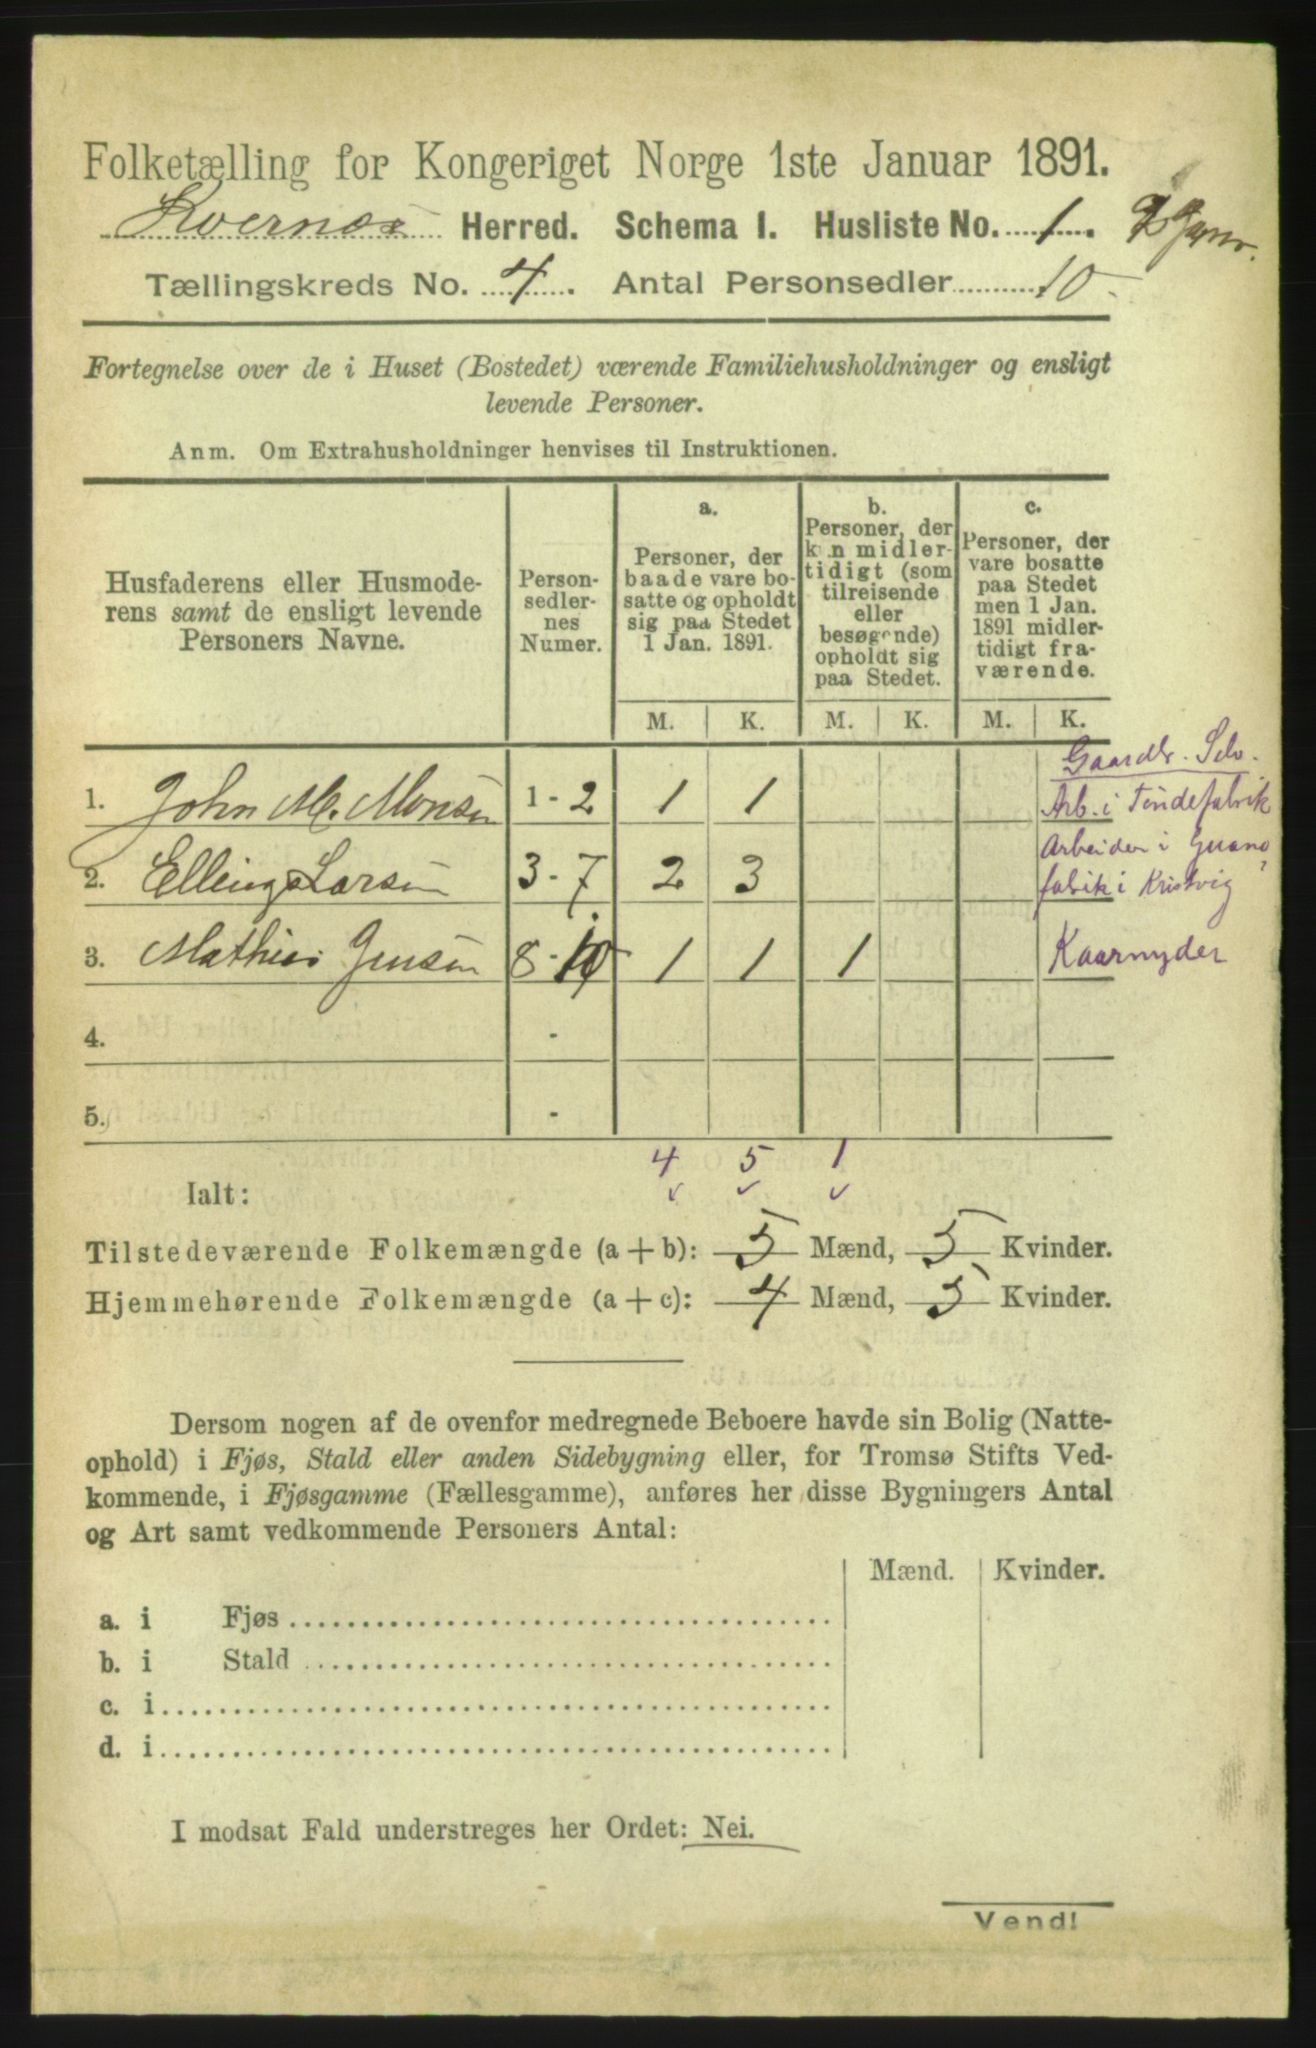 Folketælling for Kongeriget Norge 1ste Januar 1891.
Kvernæs Herred. Schema I. Husliste No. 1.
Tællingskreds No. 4. Antal Personsedler 10.
Fortegnelse over de i Huset (Bostedet) værende Familiehusholdninger og ensligt
levende Personer.
Anm. Om Extrahusholdninger henvises til Instruktionen.
Husfaderens eller Husmode-
rens samt de ensligt levende
Personers Navne.
Person-
sedler-
nes
Numer.
a.
Personer, der
baade vare bo-
satte og opholdt
sig paa Stedet
1 Jan. 1891.
b.
Personer, der
kun midler-
tidigt (som
tilreisende
eller
besøgende)
opholdt sig
paa Stedet.
c.
Personer, der
vare bosatte
paa Stedet
men 1 Jan.
1891 midler-
tidigt fra-
værende.
M. K. M. K. M. K.
Gaardbr. Selv.
1. John M. Monsen 1 - 2 1 1 Arb. i Tøndefabrik
Arbeider i Guano
2. Elling Larsen 3 - 7 2 3 fabrik i Kristvig ?
3. Mathias Jensen 8 - 10 1 1 1 Kaarnyder
4. -
5. -
4 5 1
Ialt:
Tilstedeværende Folkemængde (a + b): 5 Mænd, 5 Kvinder.
Hjemmehørende Folkemængde (a + c): 4 Mænd, 5 Kvinder.
Dersom nogen af de ovenfor medregnede Beboere havde sin Bolig (Natte-
ophold) i Fjøs, Stald eller anden Sidebygning eller, for Tromsø Stifts Ved-
kommende, i Fjøsgamme (Fællesgamme), anføres her disse Bygningers Antal
og Art samt vedkommende Personers Antal:
Mænd. Kvinder.
a. i Fjøs
b. i Stald
c. i
d. i
I modsat Fald understreges her Ordet: Nei.
Vend!